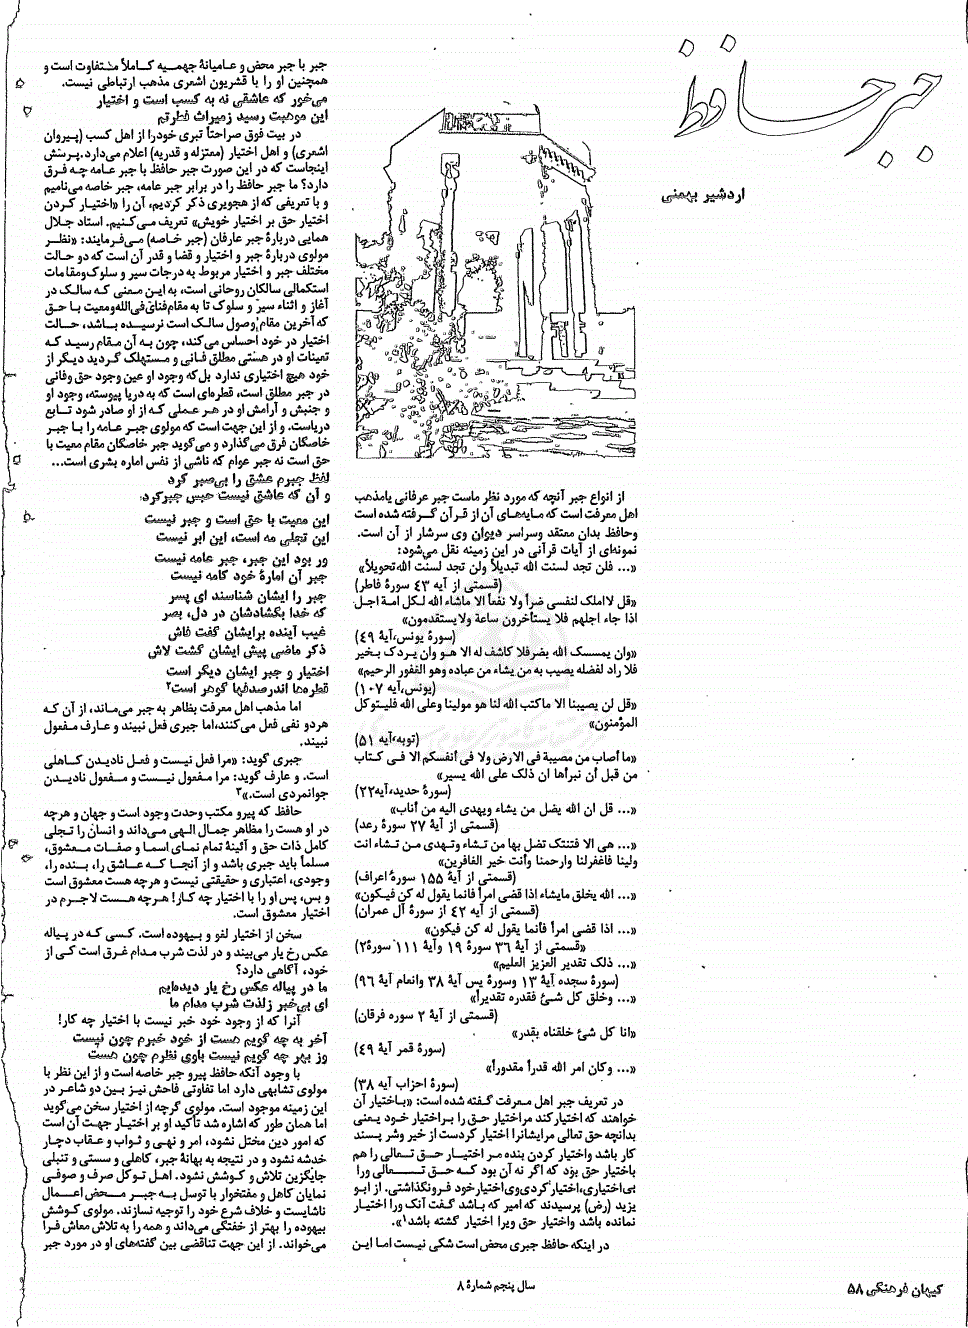 جبر حافظ
اردشیر بهمنی
از انواع جبر آنچه که مورد نظر ماست جبر عرفانی یا مذهب
اهل معرفت است که مایه‌های آن از قرآن گرفته شده است
وحافظ بدان معتقد وسراسر دیوان وی سرشار از آن است.
نمونه‌ای از آیات قرآنی در این زمینه نقل می‌شود:
«... فلن تجد لسنت الله تبدیلاً ولن تجد لسنت الله تحویلاً»
(قسمتی از آیه ۴۳ سورهٔ فاطر)
«قل لا املک لنفسی ضراً ولا نفعاً الا ماشاء الله لکل امة اجل
اذا جاء اجلهم فلا یستأخرون ساعة ولا یستقدمون»
(سورهٔ یونس،آیهٔ ۴۹)
«وان یمسسک الله بضرفلا کاشف له الا هو وان یردک بخیر
فلا راد لفضله یصیب به من یشاء من عباده وهو الغفور الرحیم»
(یونس،آیه ۱۰۷)
«قل لن یصیبنا الا ماکتب الله لنا هو مولینا وعلی الله فلیتوکل
المؤمنون»
(توبه،آیه ۵۱)
«ما أصاب من مصیبة فی الارض ولا فی أنفسکم الا فی کتاب
من قبل أن نبرأها ان ذلک علی الله یسیر»
(سورهٔ حدید،آیه۲۲)
«... قل ان الله یضل من یشاء ویهدی الیه من أناب»
(قسمتی از آیهٔ ۲۷ سورهٔ رعد)
«... هی الا فتنتک تضل بها من تشاء وتهدی من تشاء انت
ولینا فاغفرلنا وارحمنا وأنت خیر الغافرین»
(قسمتی از آیهٔ ۱۵۵ سورهٔ اعراف)
«... الله یخلق مایشاء اذا قضی امراً فانما یقول له کن فیکون»
(قسمتی از آیه ۴۲ از سورهٔ آل عمران)
«... اذا قضی امراً فانما یقول له کن فیکون»
«قسمتی از آیهٔ ۳۶ سورهٔ ۱۹ وآیهٔ ۱۱۱ سورهٔ۲)
«... ذلک تقدیر العزیز العلیم»
(سورهٔ سجده آیهٔ ۱۳ وسورهٔ یس آیهٔ ۳۸ وانعام آیهٔ ۹۶)
«... وخلق کل شیٔ فقدره تقدیراً»
(قسمتی از آیهٔ ۲ سوره فرقان)
«انا کل شیٔ خلقناه بقدر»
(سورهٔ قمر آیهٔ ۴۹)
«... وکان امر الله قدراً مقدوراً»
(سورهٔ احزاب آیه ۳۸)
در تعریف جبر اهل معرفت گفته شده است: «باختیار آن
خواهند که اختیار کند مراختیار حق را براختیار خود یعنی
بدانچه حق تعالی مرایشانرا اختیار کردست از خیر وشر پسند
کار باشد واختیار کردن بنده مر اختیار حق تعالی را هم
باختیار حق بود که اگر نه آن بود که حق تعالی ورا
بی‌اختیاری،اختیار کردی‌وی اختیار خود فرونگذاشتی. از ابو
یزید (رض) پرسیدند که امیر که باشد گفت آنک ورا اختیار
نمانده باشد واختیار حق ویرا اختیار گشته باشد۱».
در اینکه حافظ جبری محض است شکی نیست اما این
جبر با جبر محض و عامیانهٔ جهمیه کاملاً متفاوت است و
همچنین او را با قشریون اشعری مذهب ارتباطی نیست.
می‌خور که عاشقی نه به کسب است و اختیار
این موهبت رسید زمیراث فطرتم
در بیت فوق صراحتاً تبری خودرا از اهل کسب (پیروان
اشعری) و اهل اختیار (معتزله و قدریه) اعلام می‌دارد.پرسش
اینجاست که در این صورت جبر حافظ با جبر عامه چه فرق
دارد؟ ما جبر حافظ را در برابر جبر عامه، جبر خاصه می‌نامیم
و با تعریفی که از هجویری ذکر کردیم، آن را «اختیار کردن
اختیار حق بر اختیار خویش» تعریف می‌کنیم. استاد جلال
همایی دربارهٔ جبر عارفان (جبر خاصه) می‌فرمایند: «نظر
مولوی دربارهٔ جبر و اختیار و قضا و قدر آن است که دو حالت
مختلف جبر و اختیار مربوط به درجات سیر و سلوک‌ومقامات
استکمالی سالکان روحانی است، به این معنی که سالک در
آغاز و اثناء سیر و سلوک تا به مقام‌فنای فی‌الله‌ومعیت با حق
که آخرین مقام وصول سالک است نرسیده باشد، حالت
اختیار در خود احساس می‌کند، چون به آن مقام رسید که
تعینات او در هستی مطلق فانی و مستهلک گردید دیگر از
خود هیچ اختیاری ندارد بل‌که وجود او عین وجود حق وفانی
در جبر مطلق است، قطره‌ای است که به‌دریا پیوسته، وجود او
و جنبش و آرامش او در هر عملی که از او صادر شود تابع
دریاست. و از این جهت است که مولوی جبر عامه را با جبر
خاصگان فرق می‌گذارد و می‌گوید جبر خاصگان مقام معیت با
حق است نه جبر عوام که ناشی از نفس اماره بشری است...
لفظ جبرم عشق را بی‌صبر کرد
و آن که عاشق نیست حبس جبرکرد.
این معیت با حق است و جبر نیست
این تجلی مه است، این ابر نیست
ور بود این جبر، جبر عامه نیست
جبر آن امارهٔ خود کامه نیست
جبر را ایشان شناسند ای پسر
که خدا بگشادشان در دل، بصر
غیب آینده برایشان گفت فاش
ذکر ماضی پیش ایشان گشت لاش
اختیار و جبر ایشان دیگر است
قطره‌ها اندرصدفها گوهر است۲
اما مذهب اهل معرفت بظاهر به جبر می‌ماند، از آن که
هردو نفی فعل می‌کنند،اما جبری فعل نبیند و عارف مفعول
نبیند.
جبری گوید: «مرا فعل نیست و فعل نادیدن کاهلی
است. و عارف گوید: مرا مفعول نیست و مفعول نادیدن
جوانمردی است.»۳
حافظ که پیرو مکتب وحدت وجود است و جهان و هرچه
در او هست را مظاهر جمال الهی می‌داند و انسان را تجلی
کامل ذات حق و آئینهٔ تمام نمای اسما و صفات معشوق،
مسلماً باید جبری باشد و از آنجا که عاشق را، بنده را،
وجودی، اعتباری و حقیقتی نیست و هرچه هست معشوق است
و بس، پس او را با اختیار چه کار! هرچه هست لاجرم در
اختیار معشوق است.
سخن از اختیار لغو و بیهوده است. کسی که در پیاله
عکس رخ یار می‌بیند و در لذت شرب مدام غرق است کی از
خود، آگاهی دارد؟
ما در پیاله عکس رخ یار دیده‌ایم
ای بی‌خبر زلذت شرب مدام ما
آنرا که از وجود خود خبر نیست با اختیار چه کار!
آخر به چه گویم هست از خود خبرم چون نیست
وز بهر چه گویم نیست باوی نظرم چون هست
با وجود آنکه حافظ پیرو جبر خاصه است و از این نظر با
مولوی تشابهی دارد اما تفاوتی فاحش نیز بین دو شاعر در
این زمینه موجود است. مولوی گرچه از اختیار سخن می‌گوید
اما همان طور که اشاره شد تأکید او بر اختیار جهت آن است
که امور دین مختل نشود، امر و نهی و ثواب و عقاب دچار
خدشه نشود و در نتیجه به بهانهٔ جبر، کاهلی و سستی و تنبلی
جایگزین تلاش و کوشش نشود. اهل توکل صرف و صوفی
نمایان کاهل و مفتخوار با توسل به جبر محض اعمال
ناشایست و خلاف شرع خود را توجیه نسازند. مولوی کوشش
بیهوده را بهتر از خفتگی می‌داند و همه را به تلاش معاش فرا
می‌خواند. از این جهت تناقضی بین گفته‌های او در مورد جبر
سال پنجم شمارهٔ ۸
کیهان فرهنگی ۵۸